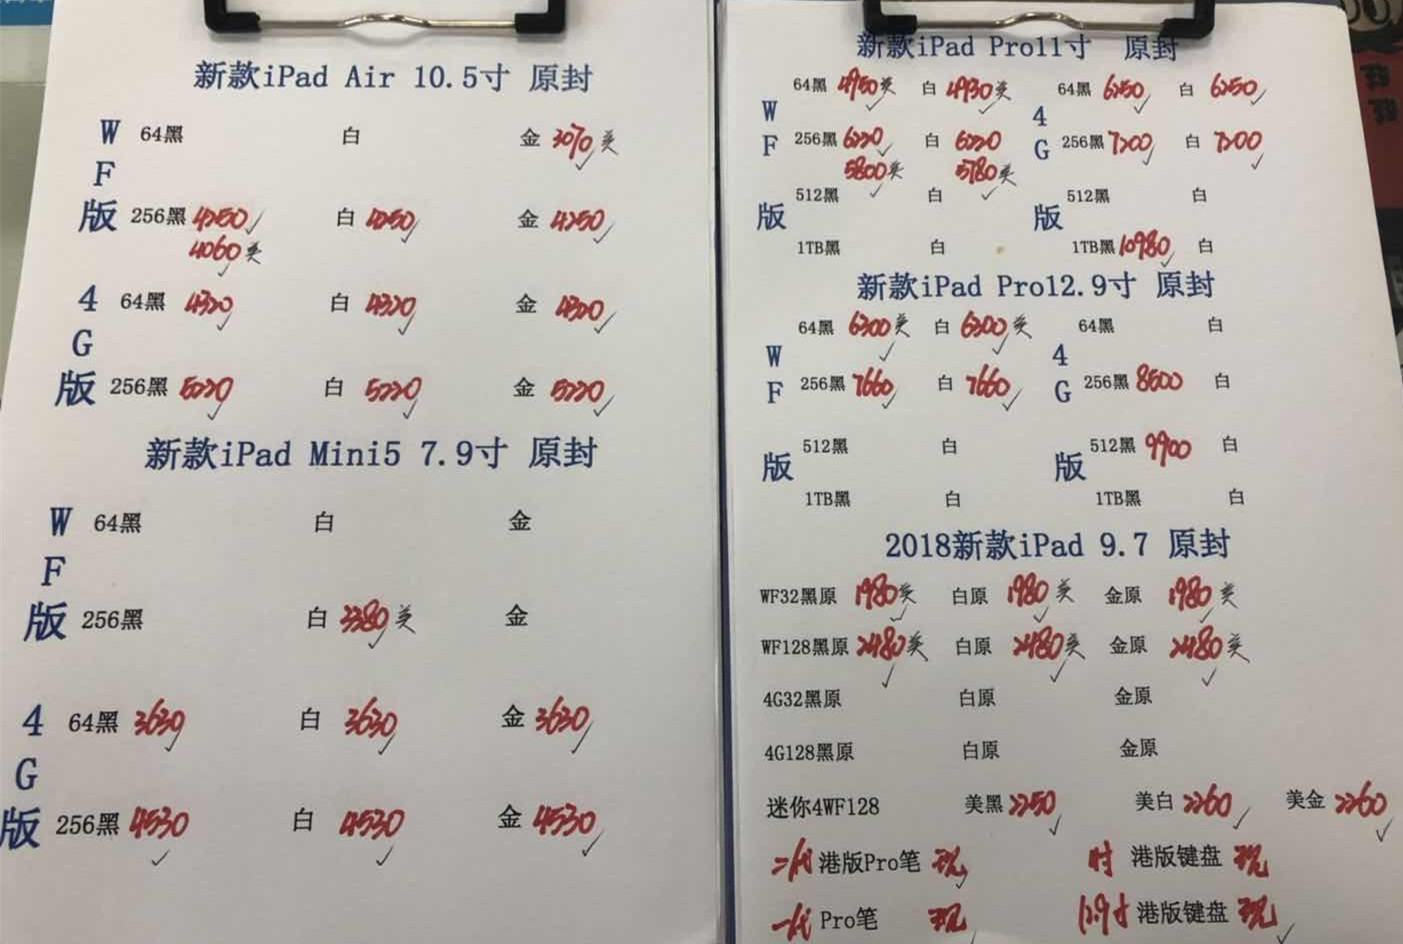 新款iPad Air 10.5寸 原封
WF版
64黑 白 金 3070美
256黑 4250 白 4250 金 4250
4060美
4G版
64黑 4320 白 4320 金 4320
256黑 5220 白 5220 金 5220
新款iPad Mini5 7.9寸 原封
WF版
64黑 白 金
256黑 白 3380美 金
4G版
64黑 3630 白 3630 金 3630
256黑 4530 白 4530 金 4530
新款iPad Pro11寸 原封
WF版 4G版
64黑 4950美 白 4930美 64黑 6250 白 6250
256黑 6220 白 6220 256黑 7200 白 7200
5800美 5780美
512黑 白 512黑 白
1TB黑 白 1TB黑 10980 白
新款iPad Pro12.9寸 原封
WF版 4G版
64黑 6300美 白 6200美 64黑 白
256黑 7660 白 7660 256黑 8600 白
512黑 白 512黑 9900 白
1TB黑 白 1TB黑 白
2018新款iPad 9.7 原封
WF32黑原 1980美 白原 1980美 金原 1980美
WF128黑原 2480美 白原 2480美 金原 2480美
4G32黑原 白原 金原
4G128黑原 白原 金原
迷你4WF128 美黑 2250 美白 2260 美金 2260
二代 港版Pro笔 现 寸 港版键盘 现
一代 Pro笔 现 12.9寸 港版键盘 现